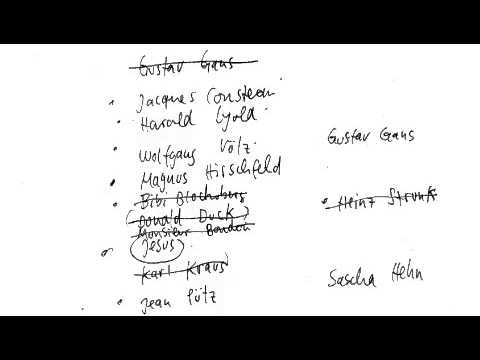 Gustav Gans
Jacques Cousteau
Harald Lyold
Wolfgang Völz
Magnus Hirschfeld
Bibi Blocksberg
(Donald Duck)
Monsieur
Jesus
Karl Kraus
Jean Pütz
Gustav Gans
Heinz Strunk
Sascha Hehn